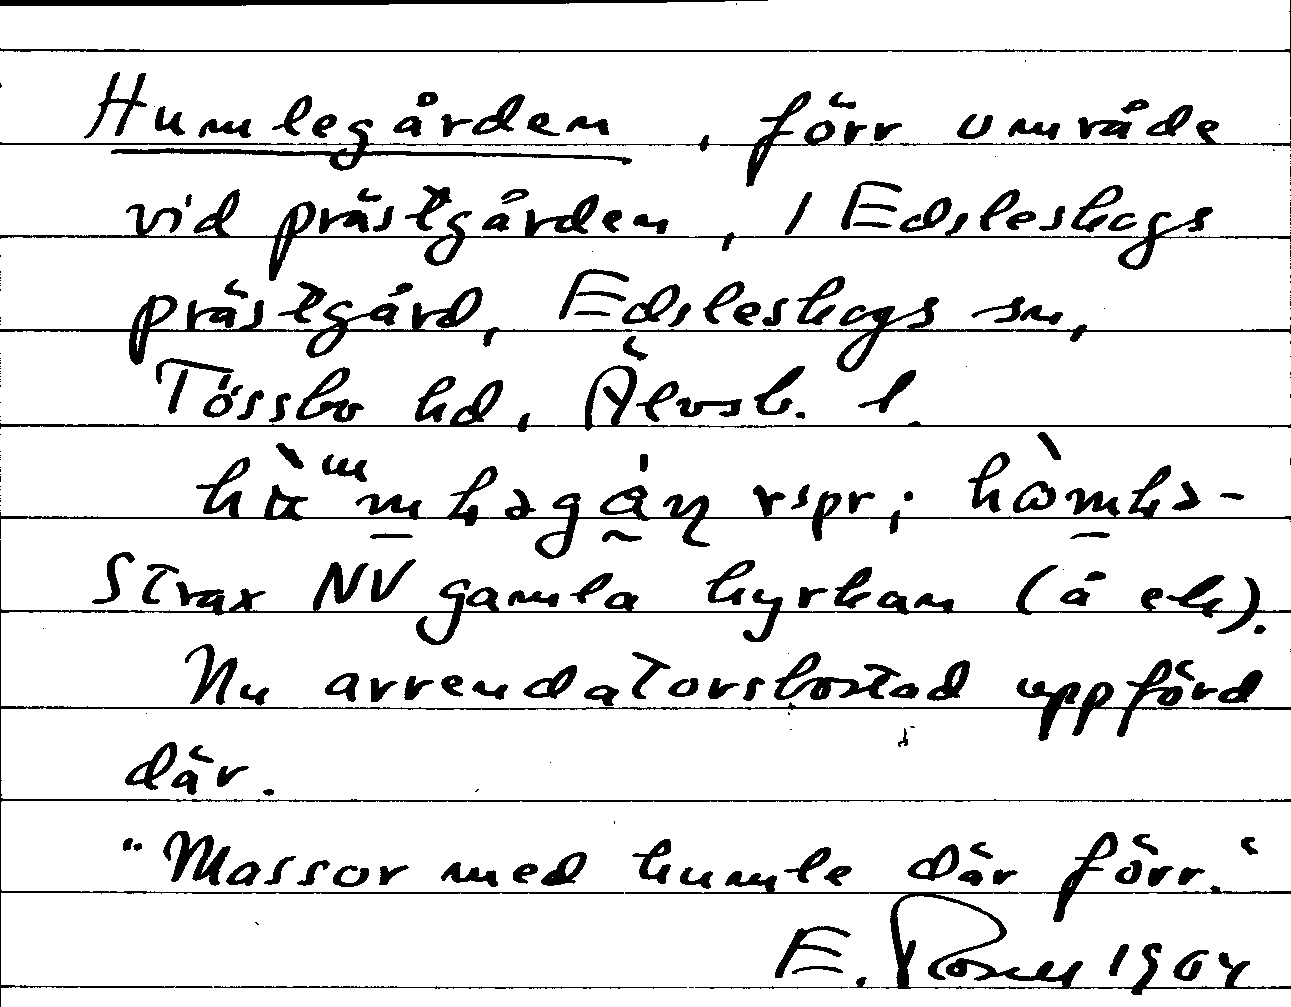 Humlegården, förr område
vid prästgården, 1 Edsleskogs
prästgård, Edsleskogs sn,
Tössbo hd, Älvsb. l.
rspr;
Strax NV gamla kyrkan (å ek).
Nu arrendatorsbostad uppförd
där.
"Massor med humle där förr."
E. 1904